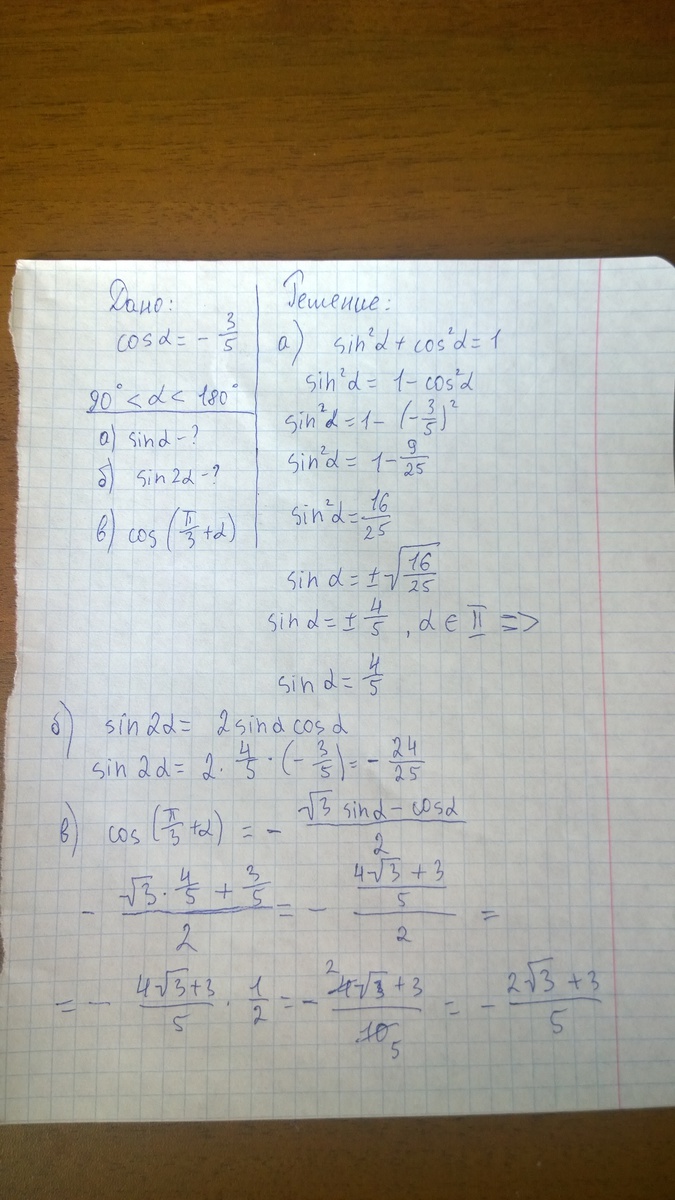 Дано:
cosα = - 3/5
90° < α < 180°
а) sinα - ?
б) sin2α - ?
в) cos(π/3 + α)
Решение:
а) sin²α + cos²α = 1
sin²α = 1 - cos²α
sin²α = 1 - (-3/5)²
sin²α = 1 - 9/25
sin²α = 16/25
sin α = ±√(16/25)
sin α = ± 4/5 , α ∈ II =>
sin α = 4/5
б) sin2α = 2sinα cosα
sin 2α = 2 · 4/5 · (-3/5) = - 24/25
в) cos(π/3 + α) = - (√3 sinα - cosα)/2
- (√3 · 4/5 + 3/5)/2 = - ((4√3 + 3)/5)/2 =
= - (4√3 + 3)/5 · 1/2 = - (4̶ 2 √3 + 3)/(1̶0̶ 5) = - (2√3 + 3)/5